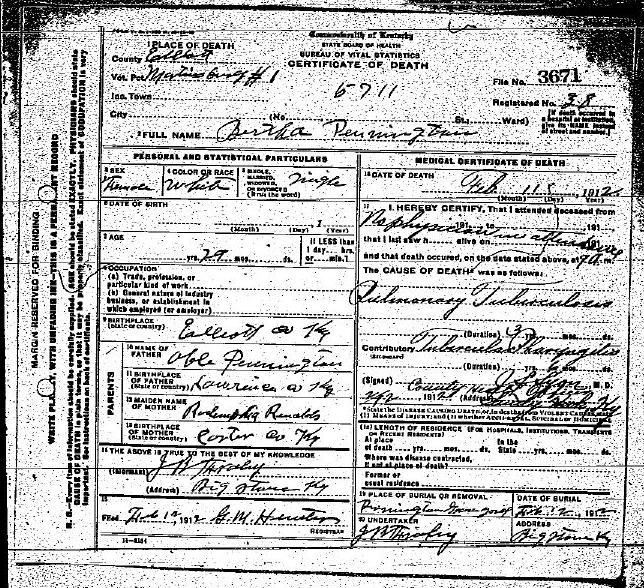 Commonwealth of Kentucky
STATE BOARD OF HEALTH
BUREAU OF VITAL STATISTICS
CERTIFICATE OF DEATH
1 PLACE OF DEATH
County Elliott
Vot. Pct Martinsburg #1
Inc. Town
City
(No. St., Ward)
6711
File No. 3671
Registered No. 38
[If death occurred in a hospital or institution, give its NAME instead of street and number.]
2 FULL NAME Bertha Pennington
PERSONAL AND STATISTICAL PARTICULARS
3 SEX Female
4 COLOR OR RACE White
5 SINGLE, MARRIED, WIDOWED, OR DIVORCED (Write the word) Single
6 DATE OF BIRTH
(Month) (Day) (Year)
7 AGE
29 yrs. mos. ds.
If LESS than 1 day, hrs. or min.?
8 OCCUPATION
(a) Trade, profession, or particular kind of work
(b) General nature of industry business, or establishment in which employed (or employer)
9 BIRTHPLACE (State or country) Elliott co Ky
PARENTS
10 NAME OF FATHER Able Pennington
11 BIRTHPLACE OF FATHER (State or country) Lawrence co Ky
12 MAIDEN NAME OF MOTHER
13 BIRTHPLACE OF MOTHER (State or country) Carter co Ky
14 THE ABOVE IS TRUE TO THE BEST OF MY KNOWLEDGE
(Informant)
(Address) Big Stone Ky
15
Filed Feb 12, 1912 G. M.
REGISTRAR
MEDICAL CERTIFICATE OF DEATH
16 DATE OF DEATH
Feb 11, 1912
(Month) (Day) (Year)
17 I HEREBY CERTIFY, That I attended deceased from
No physician in attendance
that I last saw h alive on
and that death occured, on the date stated above, at m.
The CAUSE OF DEATH* was as follows:
Pulmonary Tuberculosis
(Duration) 3 yrs. mos. ds.
Contributory Tubercular Laryngitis
(SECONDARY)
(Duration) yrs. 6 mos. ds.
(Signed) M. D.
County
1912 (Address)
*State the DISEASE CAUSING DEATH, or, in deaths from VIOLENT CAUSES, state (1) MEANS OF INJURY; and (2) whether ACCIDENTAL, SUICIDAL or HOMICIDAL
18 LENGTH OF RESIDENCE (FOR HOSPITALS, INSTITUTIONS, TRANSIENTS OR RECENT RESIDENTS)
At place of death yrs. mos. ds. In the State yrs. mos. ds.
Where was disease contracted, if not at place of death?
Former or usual residence
19 PLACE OF BURIAL OR REMOVAL
Pennington Grave Yard
DATE OF BURIAL
Feb 12, 1912
20 UNDERTAKER
ADDRESS
Big Stone Ky
MARGIN RESERVED FOR BINDING
WRITE PLAINLY, WITH UNFADING INK—THIS IS A PERMANENT RECORD